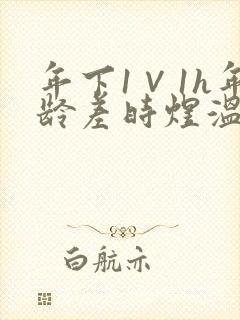 年下1V1h年
龄差时煜温
白航亦